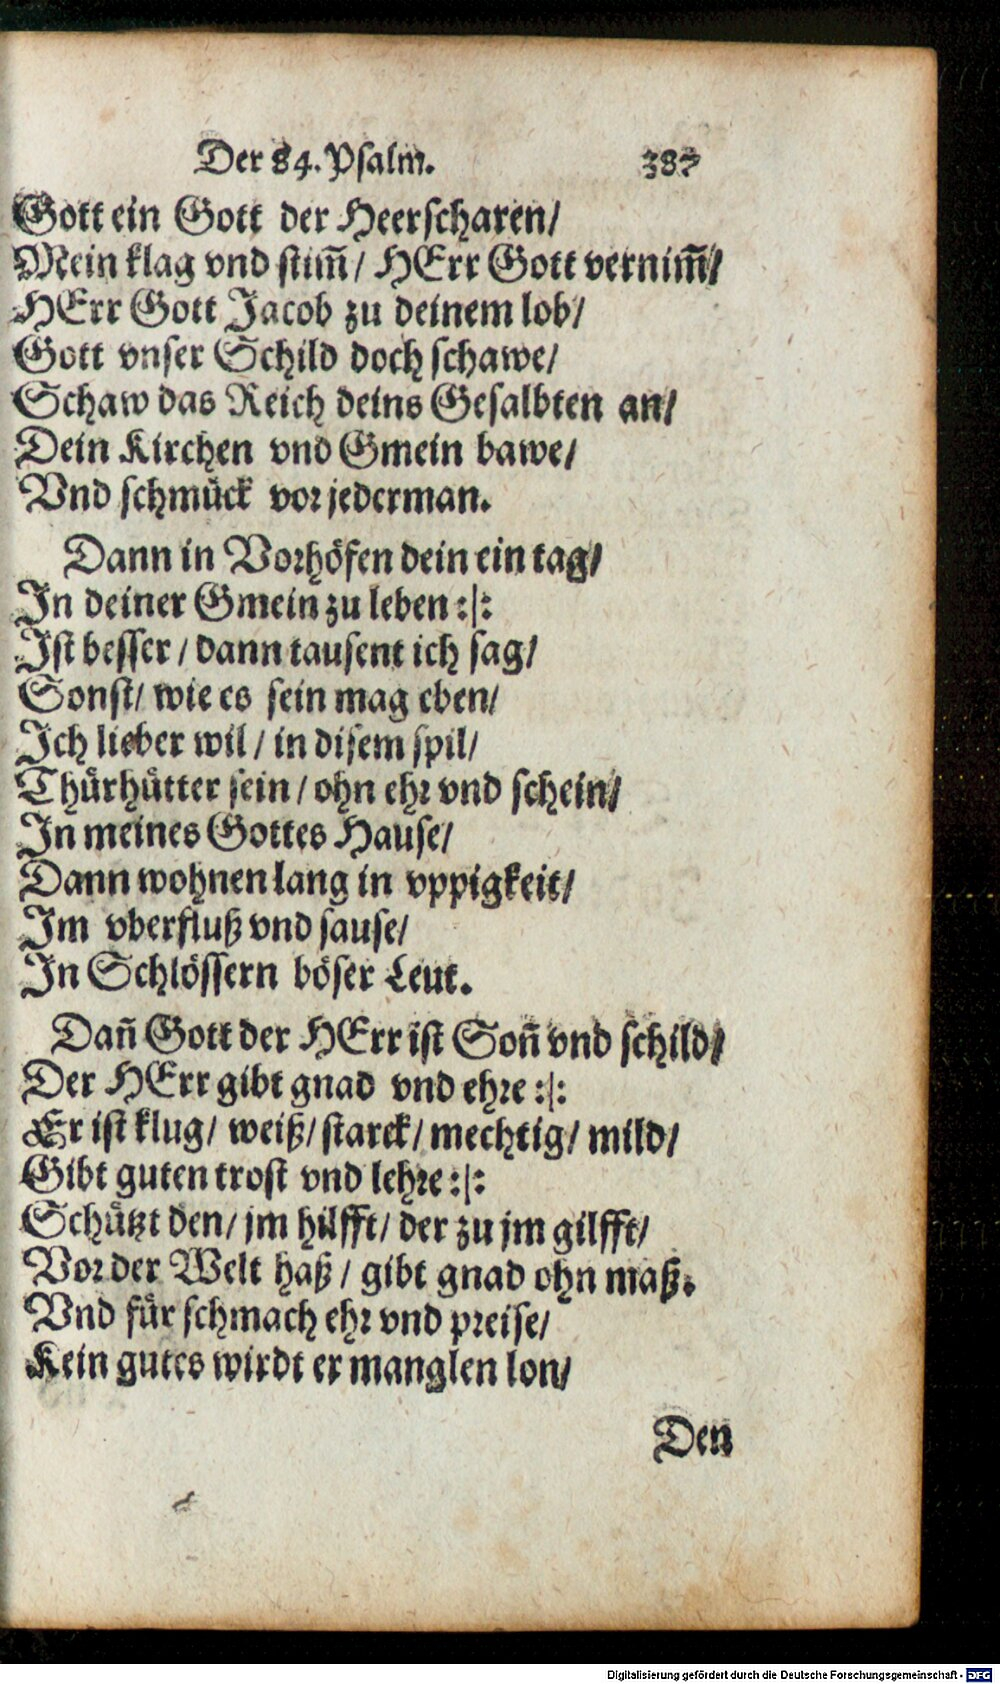 Der 84. Psalm. 387
Gott ein Gott der Heerscharen/
Mein klag vnd stim̃/ HErr Gott vernim̃/
HErr Gott Jacob zu deinem lob/
Gott vnser Schild doch schawe/
Schaw das Reich deins Gesalbten an/
Dein Kirchen vnd Gmein bawe/
Vnd schmück vor jederman.
Dann in Vorhöfen dein ein tag/
In deiner Gmein zu leben :|:
Ist besser/ dann tausent ich sag/
Sonst/ wie es sein mag eben/
Ich lieber wil/ in disem spil/
Thürhütter sein/ ohn ehr vnd schein/
In meines Gottes Hause/
Dann wohnen lang in vppigkeit/
Im vberfluß vnd sause/
In Schlössern böser Leut.
Dañ Gott der HErr ist Soñ vnd schild/
Der HErr gibt gnad vnd ehre :|:
Er ist klug/ weiß/ starck/ mechtig/ mild/
Gibt guten trost vnd lehre :|:
Schützt den/ jm hilfft/ der zu jm gilfft/
Vor der Welt haß/ gibt gnad ohn maß.
Vnd für schmach ehr vnd preise/
Kein gutes wirdt er manglen lon/
Den
Digitalisierung gefördert durch die Deutsche Forschungsgemeinschaft - DFG